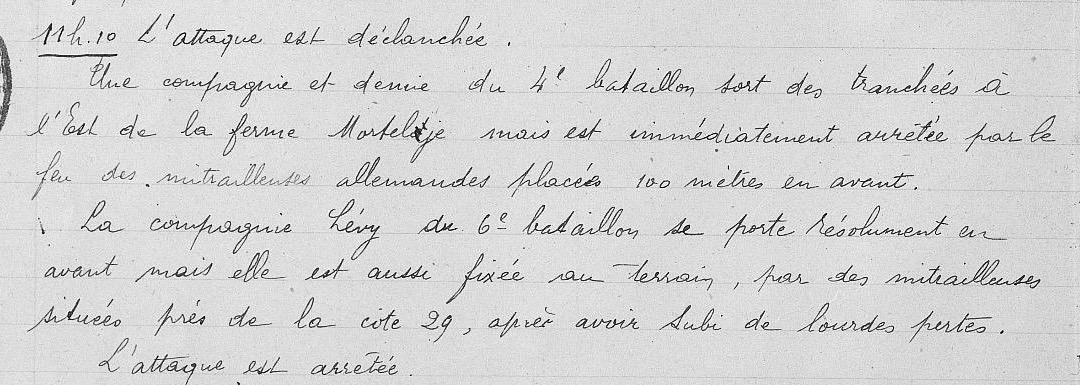 11h.10 L'attaque est déclanchée.
Une compagnie et demie du 4e bataillon sort des tranchées à
l'Est de la ferme Morteldje mais est immédiatement arrêtée par le
feu des mitrailleuses allemandes placées 100 mètres en avant.
La compagnie Lévy du 6e bataillon se porte résolument en
avant mais elle est aussi fixée au terrain, par des mitrailleuses
situées près de la côte 29, après avoir subi de lourdes pertes.
L'attaque est arrêtée.